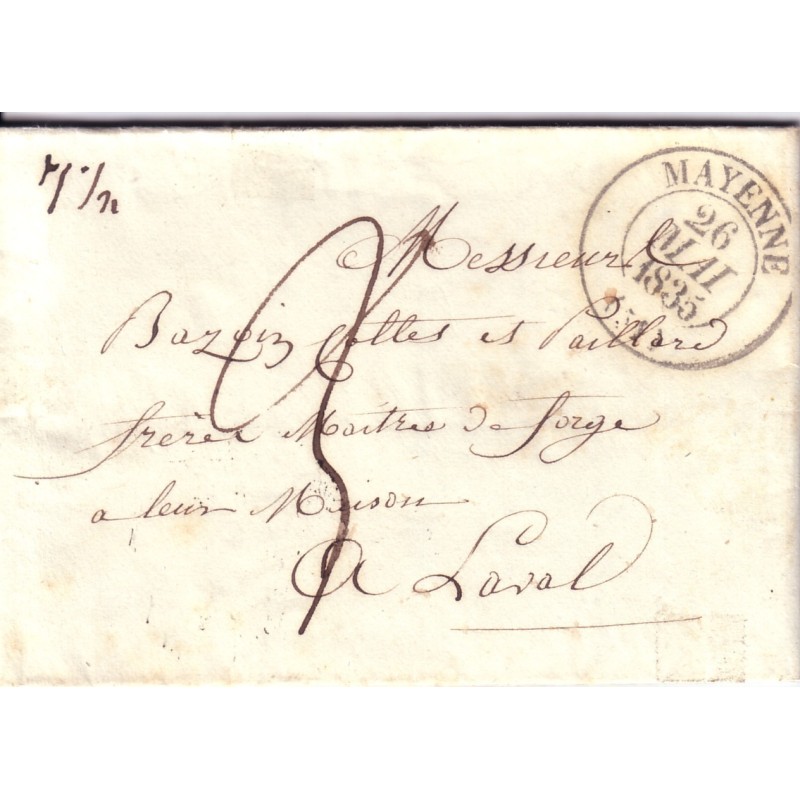 7 1/2
MAYENNE
26
MAI
1835
3
Messieurs
Bazoin et Paillard
frères Maitres de forge
a leur Maison
A Laval